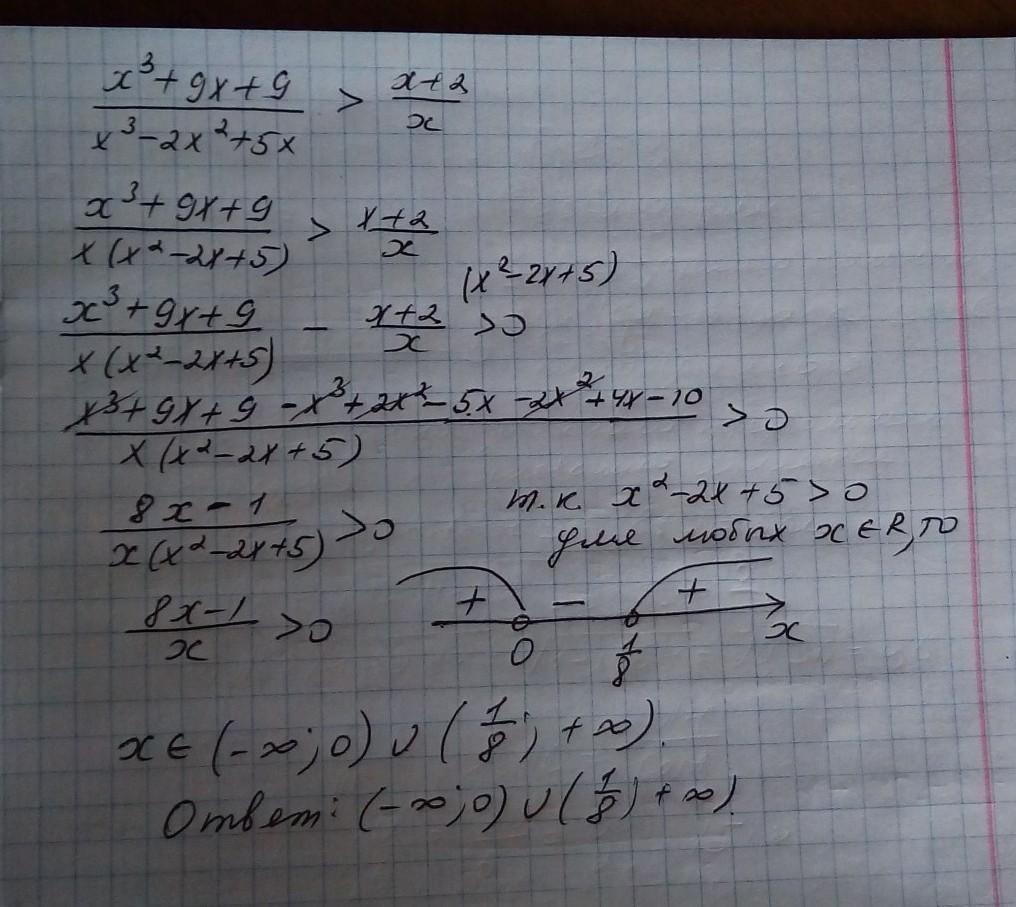 (x³+9x+9)/(x³-2x²+5x) > (x+2)/x
(x³+9x+9)/(x(x²-2x+5)) > (x+2)/x
(x²-2x+5)
(x³+9x+9)/(x(x²-2x+5)) - (x+2)/x >0
(x³+9x+9-x³+2x²-5x-2x²+4x-10)/(x(x²-2x+5)) > 0
(8x-1)/(x(x²-2x+5)) >0
т.к. x²-2x+5>0
для любых x∈R, то
(8x-1)/x >0
+ - +
0 1/8 x
x∈(-∞;0)∪(1/8;+∞).
Ответ: (-∞;0)∪(1/8;+∞).